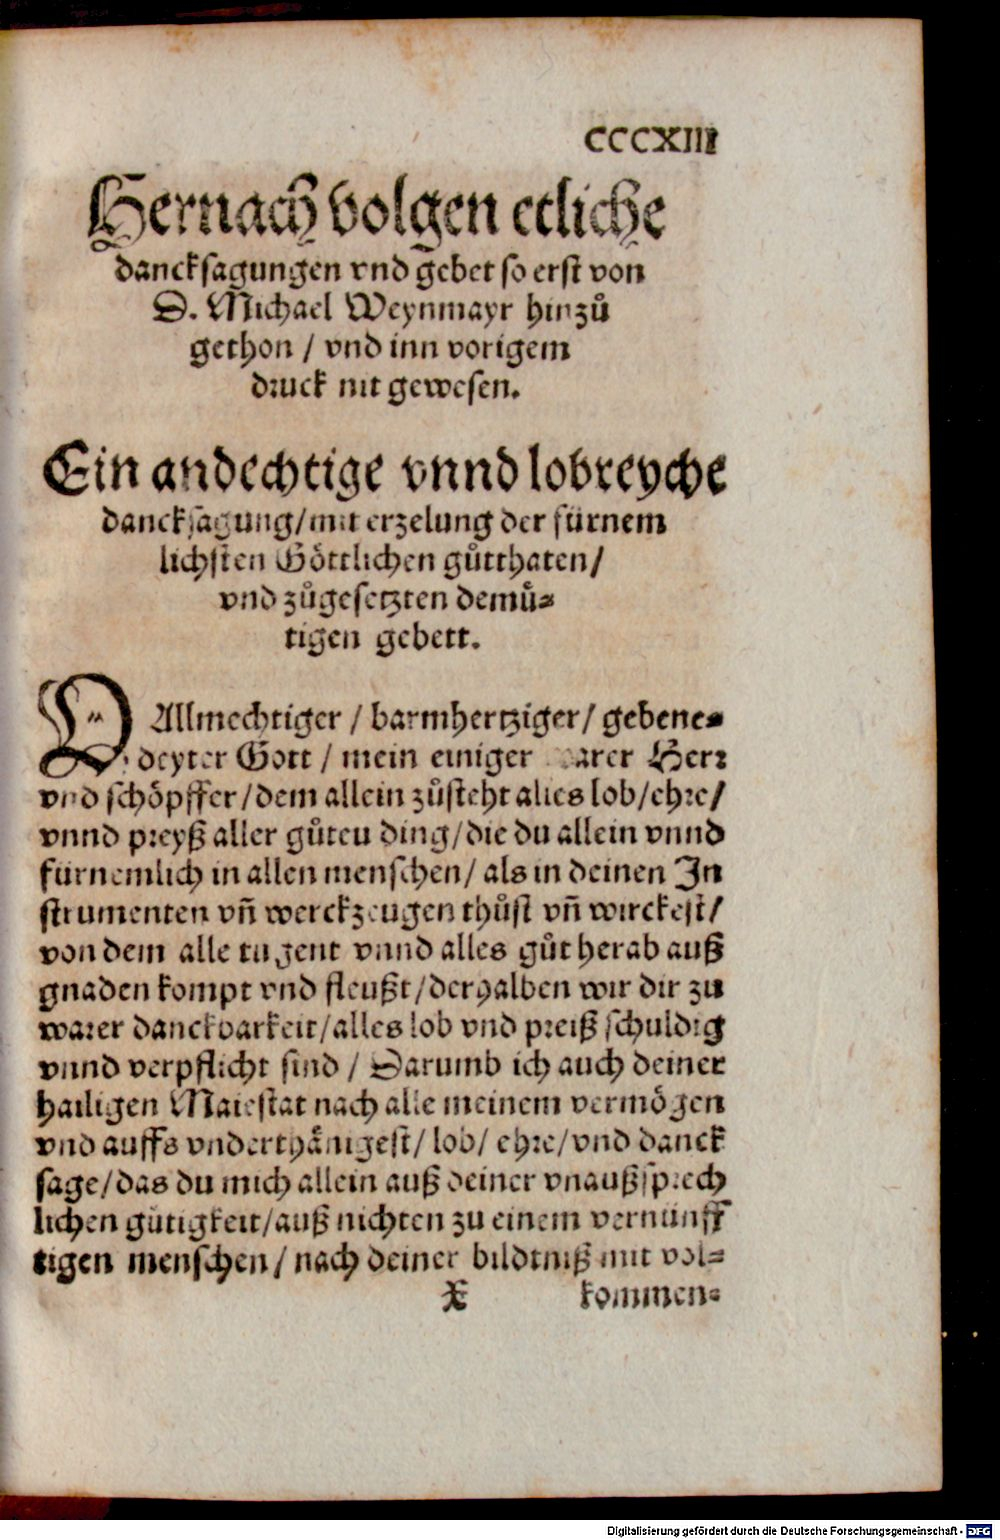 CCCXIII
Hernach volgen etliche
dancksagungen vnd gebet so erst von
D. Michael Weynmayr hinzů
gethon / vnd inn vorigem
druck nit gewesen.
Ein andechtige vnnd lobreyche
dancksagung/mit erzelung der fürnem
lichsten Göttlichen gůtthaten/
vnd zůgesetzten demů⸗
tigen gebett.
O Allmechtiger / barmhertziger/ gebene⸗
deyter Gott / mein einiger warer Herr
vnd schöpffer/dem allein zůsteht alles lob/ehre/
vnnd preyß aller gůten ding/die du allein vnnd
fürnemlich in allen menschen/ als in deinen In
strumenten vñ werckzeugen thůst vñ wirckest/
von dem alle tugent vnnd alles gůt herab auß
gnaden kompt vnd fleußt/derhalben wir dir zu
warer danckbarkeit/alles lob vnd preiß schuldig
vnnd verpflicht sind / Darumb ich auch deiner
hailigen Maiestat nach alle meinem vermögen
vnd auffs vnderthänigest/ lob/ ehre/vnd danck
sage/das du mich allein auß deiner vnaußsprech
lichen gütigkeit/auß nichten zu einem vernünff
tigen menschen/ nach deiner bildtniß mit vol⸗
X kommen⸗
Digitalisierung gefördert durch die Deutsche Forschungsgemeinschaft - DFG